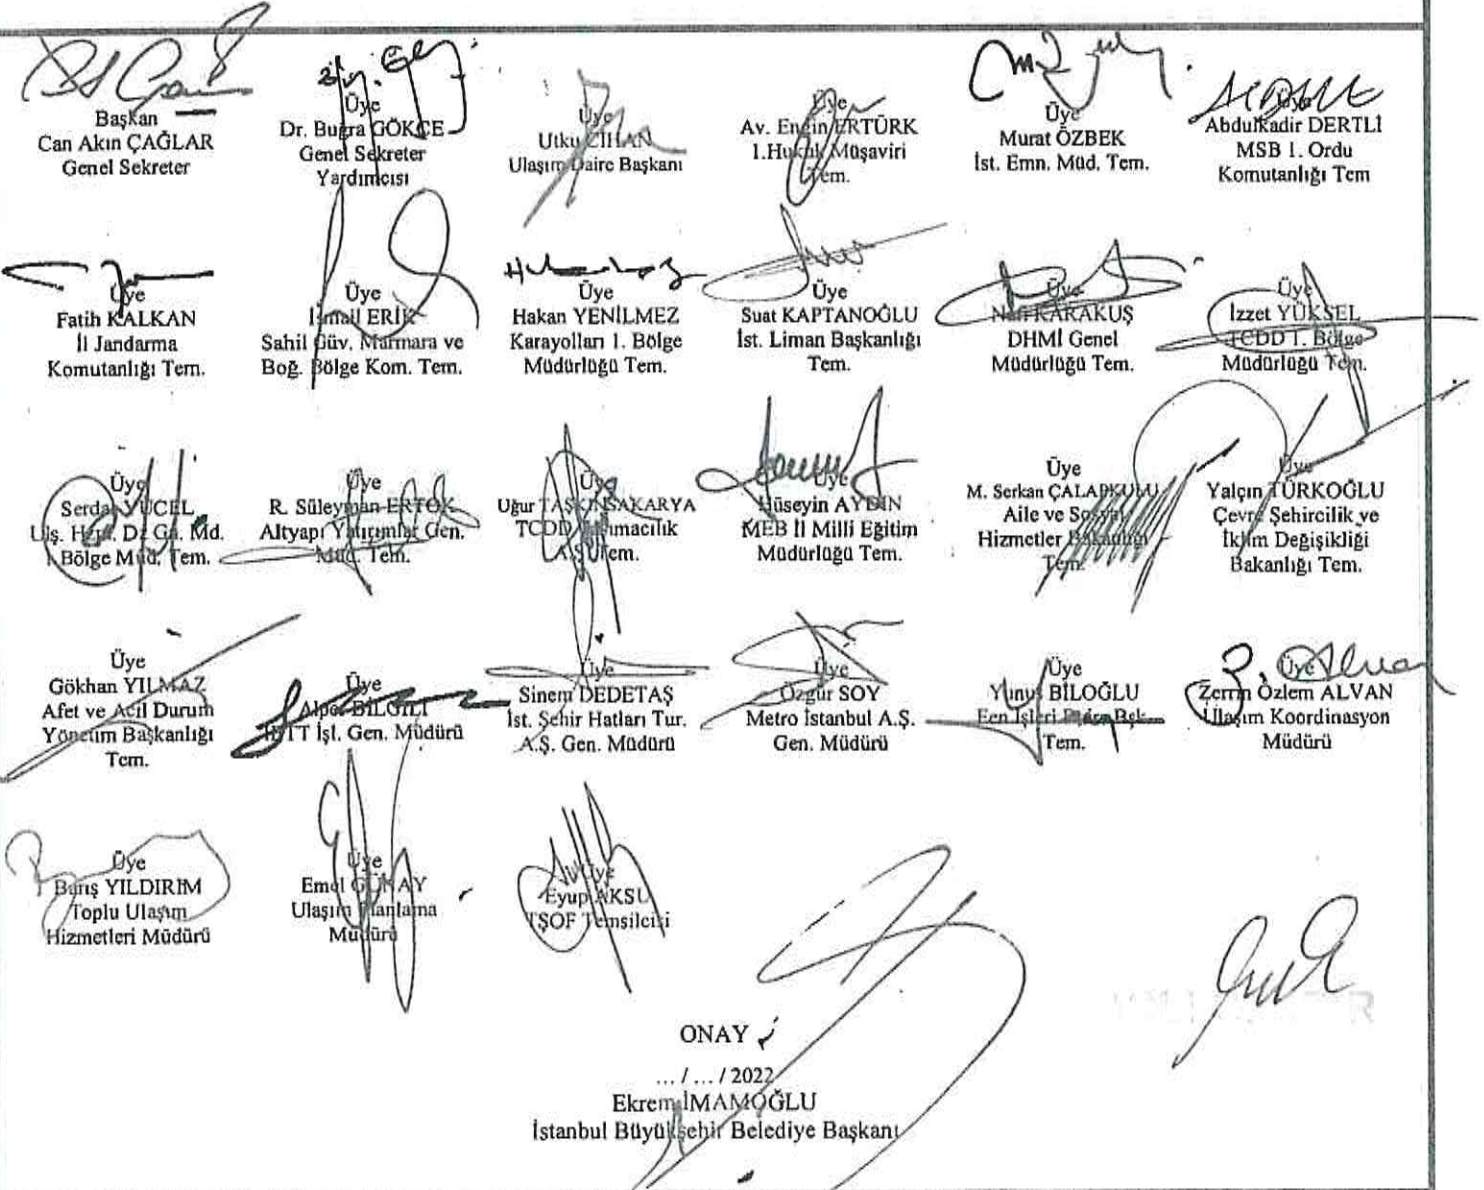 Başkan
Can Akın ÇAĞLAR
Genel Sekreter
Üye
Dr. Buğra GÖKÇE
Genel Sekreter
Yardımcısı
Üye
Utku CİHAN
Ulaşım Daire Başkanı
Üye
Av. Engin ERTÜRK
1.Hukuk Müşaviri
Tem.
Üye
Murat ÖZBEK
İst. Emn. Müd. Tem.
Üye
Abdulkadir DERTLİ
MSB 1. Ordu
Komutanlığı Tem
Üye
Fatih KALKAN
İl Jandarma
Komutanlığı Tem.
Üye
İsmail ERİK
Sahil Güv. Marmara ve
Boğ. Bölge Kom. Tem.
Üye
Hakan YENİLMEZ
Karayolları 1. Bölge
Müdürlüğü Tem.
Üye
Suat KAPTANOĞLU
İst. Liman Başkanlığı
Tem.
Üye
KARAKUŞ
DHMİ Genel
Müdürlüğü Tem.
Üye
İzzet YÜKSEL
TCDD 1. Bölge
Müdürlüğü Tem.
Üye
Serdar YÜCEL
Ulş. Md.
Bölge Müd. Tem.
Üye
R. Süleyman ERTOK
Altyapı Yatırımlar Gen.
Müd. Tem.
Üye
Uğur TAŞKINSAKARYA
TCDD Taşımacılık
A.Ş. Tem.
Üye
Hüseyin AYDIN
MEB İl Milli Eğitim
Müdürlüğü Tem.
Üye
M. Serkan ÇALAPKULU
Aile ve Sosyal
Hizmetler Bakanlığı
Tem.
Üye
Yalçın TÜRKOĞLU
Çevre Şehircilik ve
İklim Değişikliği
Bakanlığı Tem.
Üye
Gökhan YILMAZ
Afet ve Acil Durum
Yönetim Başkanlığı
Tem.
Üye
Alper BİLGİLİ
İETT İşl. Gen. Müdürü
Üye
Sinem DEDETAŞ
İst. Şehir Hatları Tur.
A.Ş. Gen. Müdürü
Üye
Özgür SOY
Metro İstanbul A.Ş.
Gen. Müdürü
Üye
Yunus BİLOĞLU
Fen İşleri Daire Bşk.
Tem.
Üye
Zerrin Özlem ALVAN
Ulaşım Koordinasyon
Müdürü
Üye
Barış YILDIRIM
Toplu Ulaşım
Hizmetleri Müdürü
Üye
Emel GÜNAY
Ulaşım Planlama
Müdürü
Üye
Eyup AKSU
TŞOF Temsilcisi
ONAY
... / ... / 2022
Ekrem İMAMOĞLU
İstanbul Büyükşehir Belediye Başkanı